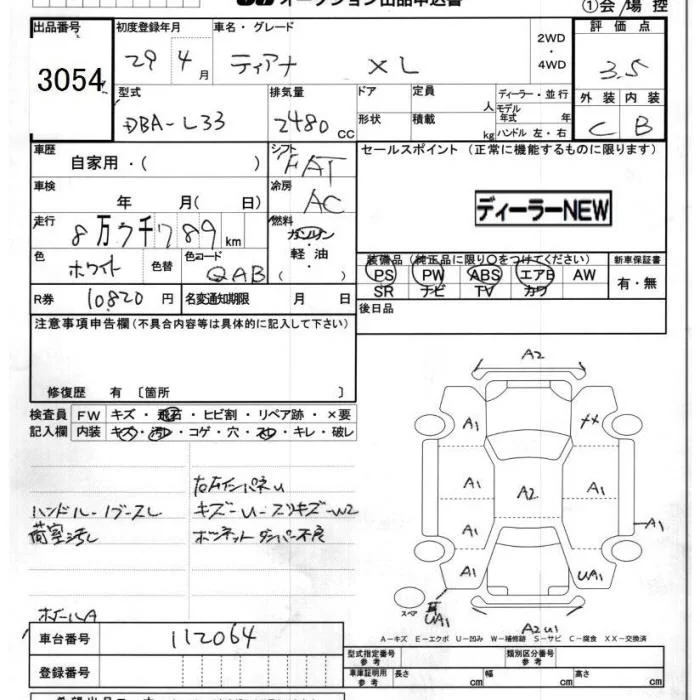 オークション出品申込書
①会/場 控
出品番号 初度登録年月 車名・グレード 2WD・4WD 評価点
3054 29 4月 ティアナ XL 3.5
型式 排気量 ドア 定員 人 ディーラー・並行 外装 内装
DBA-L33 2480 cc 形状 積載 kg モデル年式 年 ハンドル 左・右 C B
車歴 自家用・( ) シフト FAT セールスポイント (正常に機能するものに限ります)
車検 年 月( 日) 冷房 AC
ディーラーNEW
走行 8万7千789km 燃料 ガソリン・軽油・( )
色 ホワイト 色替 色コード QAB
装備品(純正品に限り○をつけてください) 新車保証書
PS PW ABS エアB AW 有・無
SR ナビ TV カワ
R券 10820円 名変通知期限 月 日 後日品
注意事項申告欄(不具合内容等は具体的に記入して下さい)
修復歴 有 〔箇所 〕
検査員 FW キズ・飛石・ヒビ割・リペア跡・×要
記入欄 内装 キズ・汚レ・コゲ・穴・スレ・キレ・破レ
A2
A1 XX
左右インパネU
ハンドル-1ブースレ キズ-U-スリキズ-W2
A1 A2 A1
荷室汚レ ボンネットダンパー不良
A1 A1
A1 UA1
スペア UA1
ホイールA
A2 U1
A-キズ E-エクボ U-凹み W-補修跡 S-サビ C-腐食 XX-交換済
車台番号 112064
型式指定番号 参考 類別区分番号 参考
登録番号 車庫証明用 参考 長さ cm 幅 cm 高さ cm